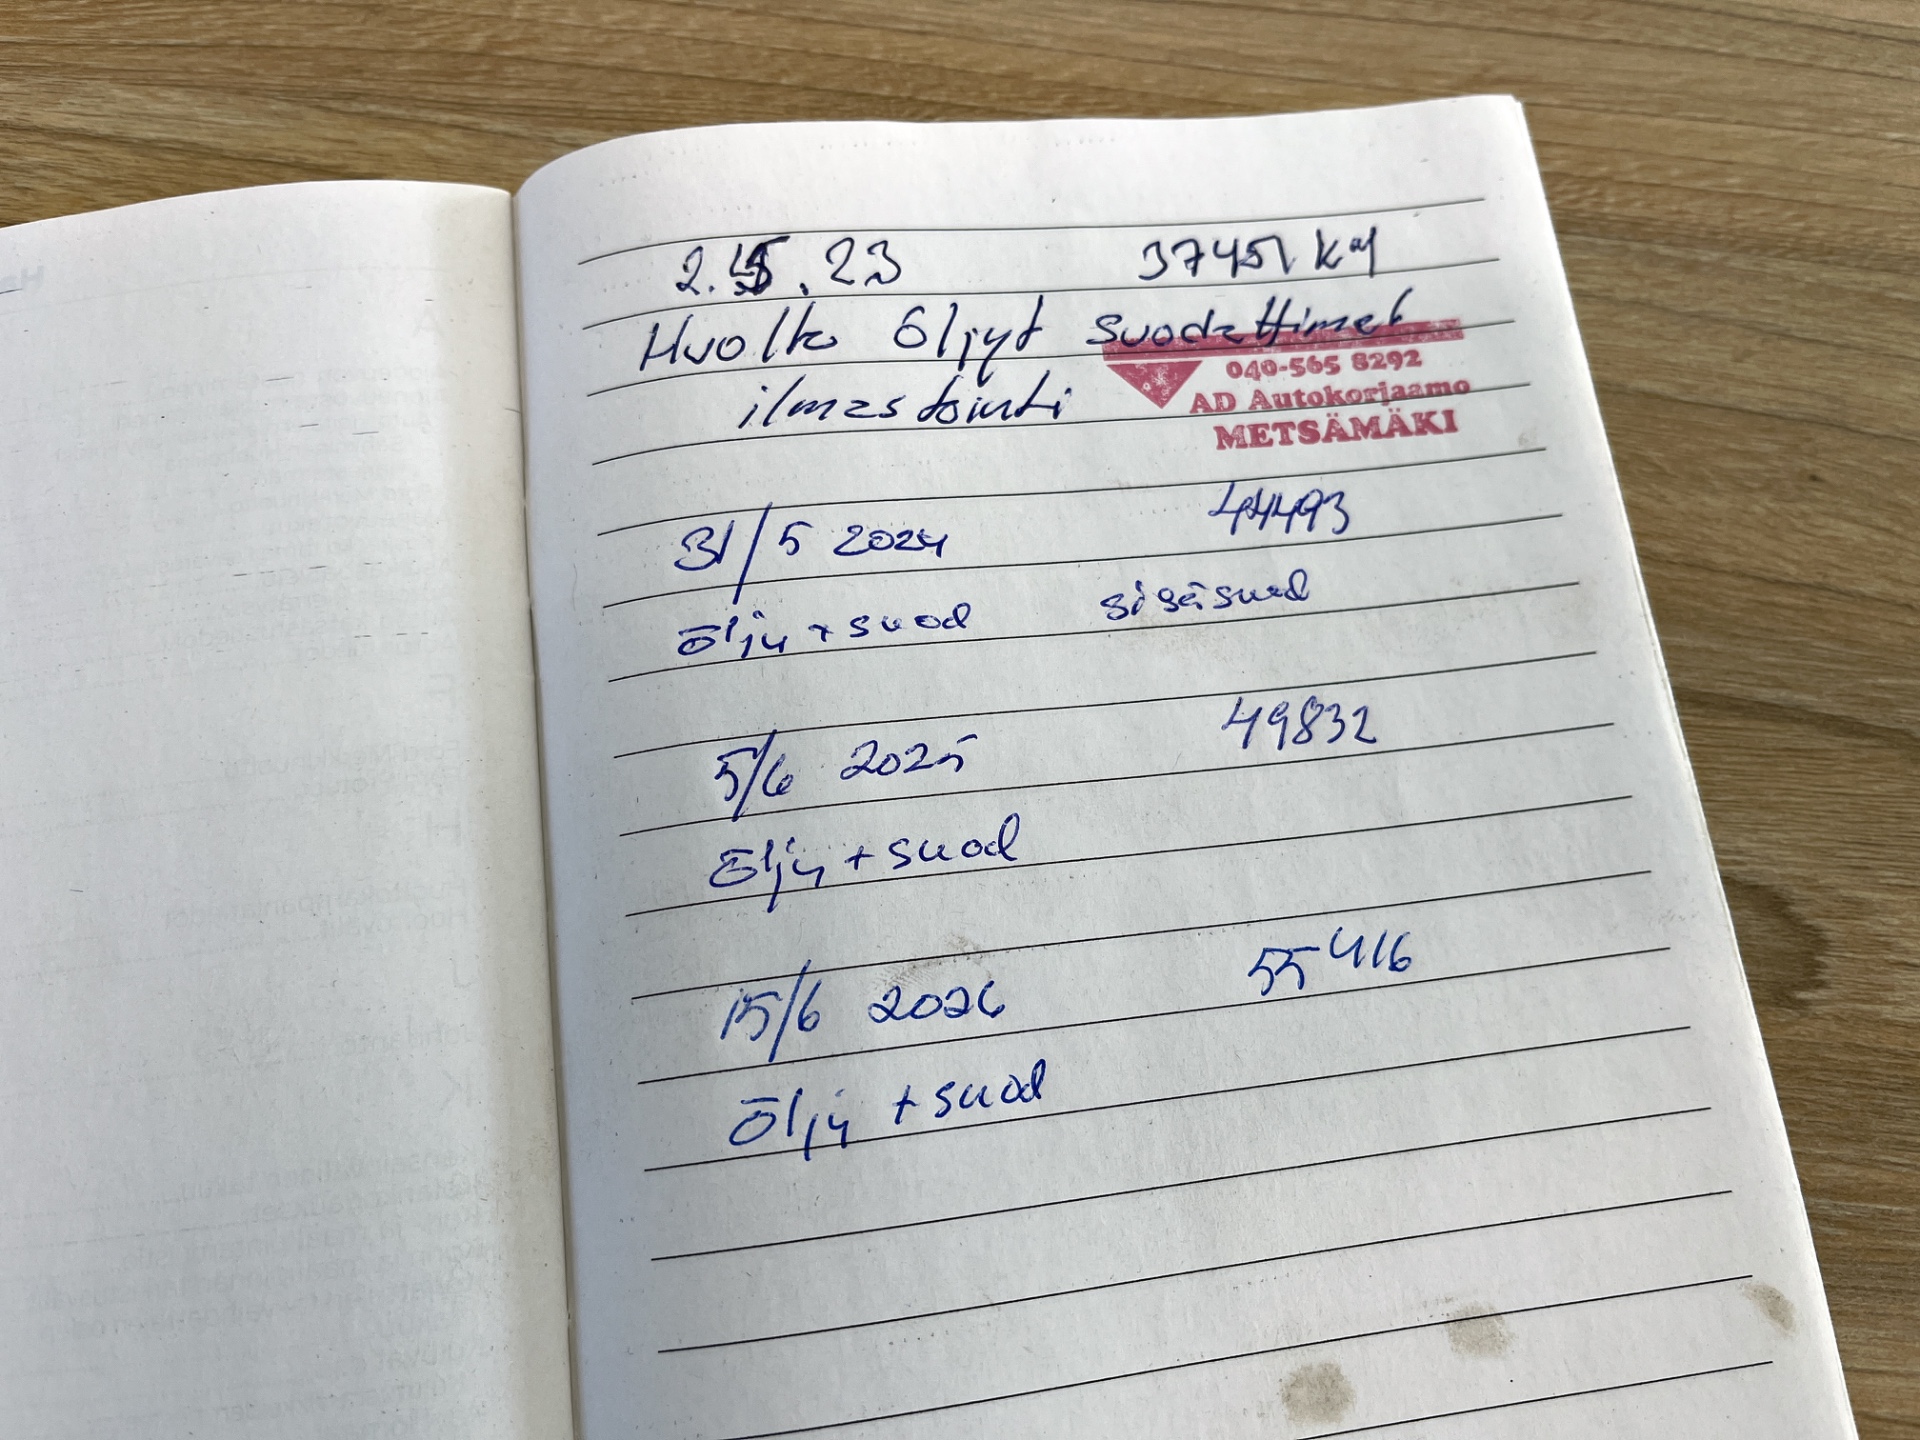 2.5.23 37451 km
Huolto öljyt suodattimet
ilmastointi
040-565 8292
AD Autokorjaamo
METSÄMÄKI
31/5 2024 44493
öljy + suod sisäsuod
5/6 2025 49832
öljy + suod
15/6 2026 55416
öljy + suod